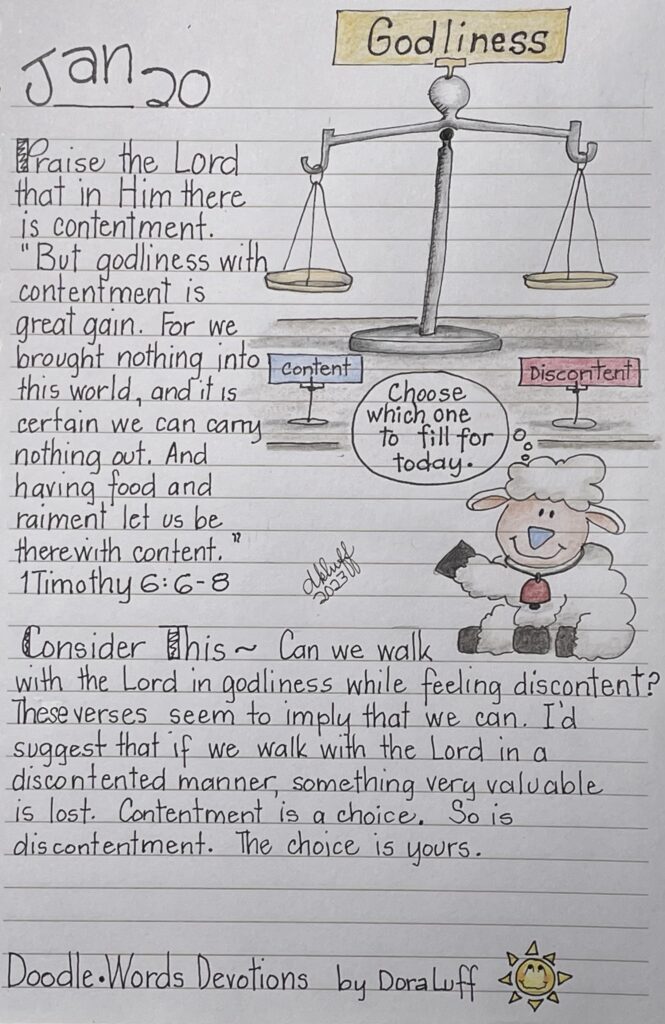 Jan 20
Godliness
Praise the Lord
that in Him there
is contentment.
"But godliness with
contentment is
great gain. For we
brought nothing into
this world, and it is
certain we can carry
nothing out. And
having food and
raiment let us be
therewith content."
1 Timothy 6:6-8
Content
Discontent
Choose
which one
to fill for
today.
dbluff
2023
Consider This ~ Can we walk
with the Lord in godliness while feeling discontent?
These verses seem to imply that we can. I'd
suggest that if we walk with the Lord in a
discontented manner, something very valuable
is lost. Contentment is a choice. So is
discontentment. The choice is yours.
Doodle•Words Devotions by Dora Luff